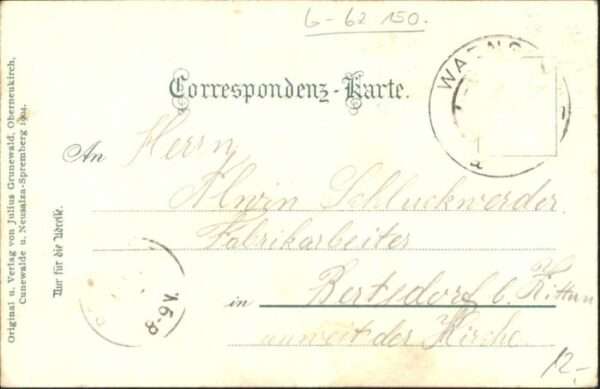 6-62 150.
Correspondenz-Karte.
WARNS
An Herrn
Alwin Schluckwerder.
Fabrikarbeiter
in Bertsdorf b. Zittau
unweit der Kirche.
Nur für die Adresse.
Original u. Verlag von Julius Grunewald, Oberneukirch,
Cunewalde u. Neusalza-Spremberg 1904.
12,-